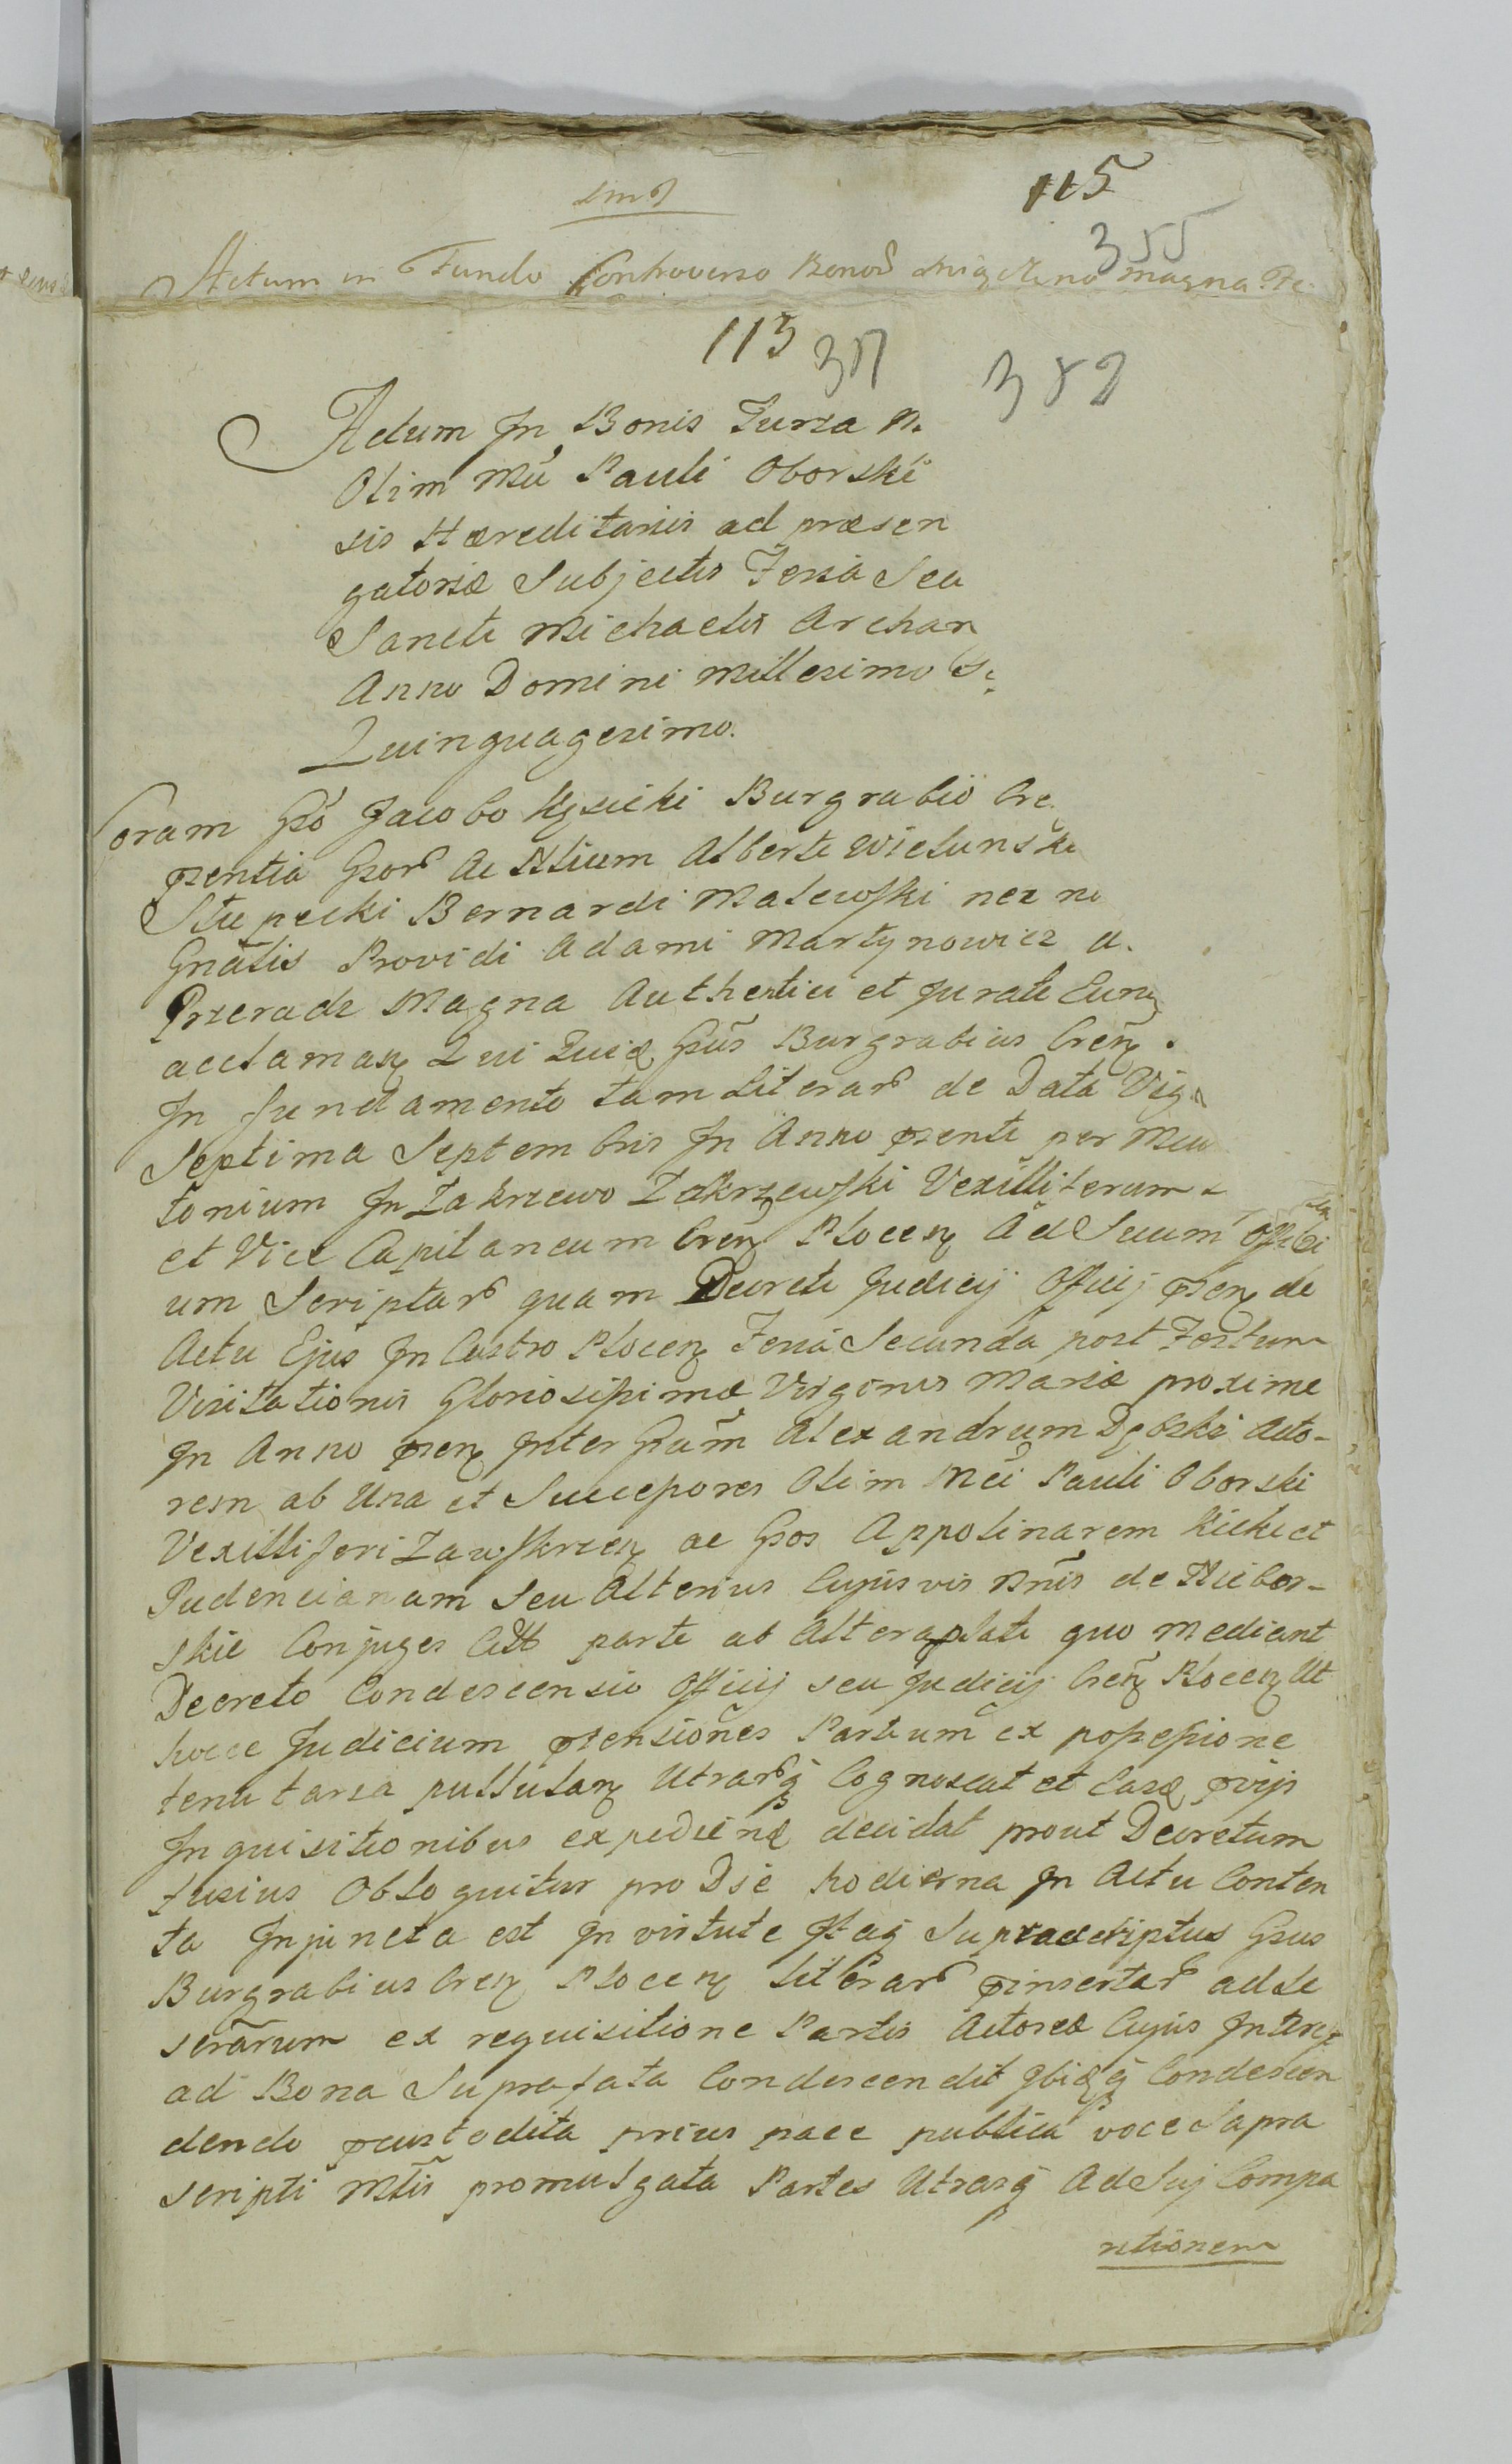 115
355
Actum in Fundo Controverso Bonor magna
115
382
Actum In Bonis Turza
Olim Mci Pauli Oborski
sis Hæreditariis ad præsen
gatoriæ Subjectis Feria Seu
Sancti Michaelis Archan
Anno Domini Millesimo S
Quinquagesimo.
Coram Gso Jacobo Kęsicki Burgrabio Cre
pzentia Gsor Ac Nlium Alberti Wielunski
Słupecki Bernardi Malewski nec no
Gnalis Providi Adami Martynowicz a
Przeradz Magna Authentici et Jurati Eun
acclaman Qui Quid Gsus Burgrabius Cren
In fundamento tam Literar de Data Vig
Septima Septembris In Anno pzenti per Mcu
tonium In Zakrzewo Zakrzewski Vexilliferum
et Vice Capitaneum Cren Plocen Ad Suum Offici
um Scriptar quam Decreti Judicij Officij pzen de
Actu Ejus In Castro Plocen Feria Secunda post Festum
Visitationis Gloriosissimæ Virginis Mariæ proxime
In Anno pzen Inter Gsum Alexandrum Dębski Acto-
rem ab Una et Successores Olim Mci Pauli Oborski
Vexilliferi Zawskrzen ac Gsos Appolinarem Kicki et
Pudencianam Seu Alterius Cujusvis Nnis de Nibor-
skie Conjuges Citt parte ab Altera plati quo mediant
Decreto Condescensio Officij seu Judicij Cren Plocen Ut
hocce Judicium pztensiones Partium ex possessione
tenutaria pullulan Utrarq Cognoscat et Easq pvijs
Inquisitionibus expedien decidat prout Decretum
fusius Obloquitur pro Die hodierna In Actu Conten
ta Injuncta est In virtute Itaq Supradscriptus Gsus
Burgrabius Cren Plocen Literar pinsertar ad Se
scrarum ex requisitione Partis Actoreæ Cujus Inter
ad Bona Suprafata Condescendit Ibiq Condescen
dendo pcustodita prius pace publica voce Supra
scripti Mlis promulgata Partes Utrasq Ad Sui Compa
ritionem